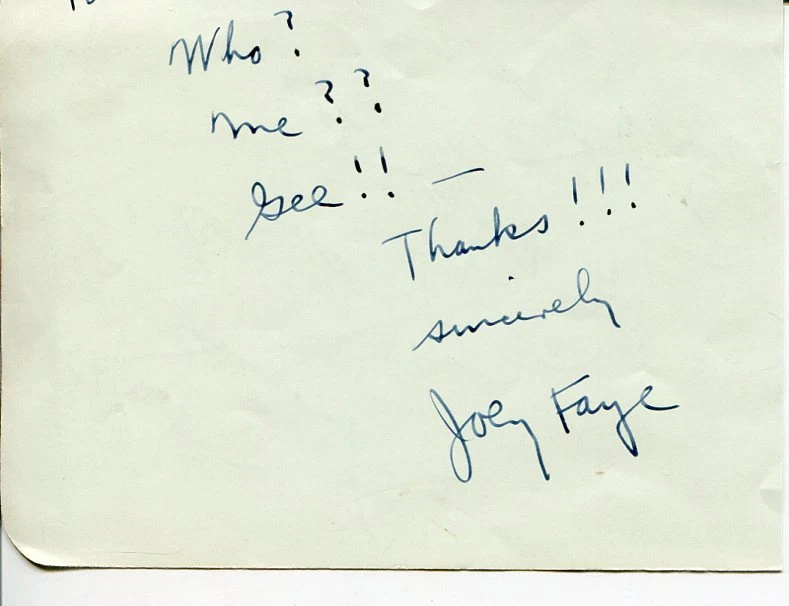 Who?
me??
Gee!! —
Thanks!!!
sincerely
Joey Faye